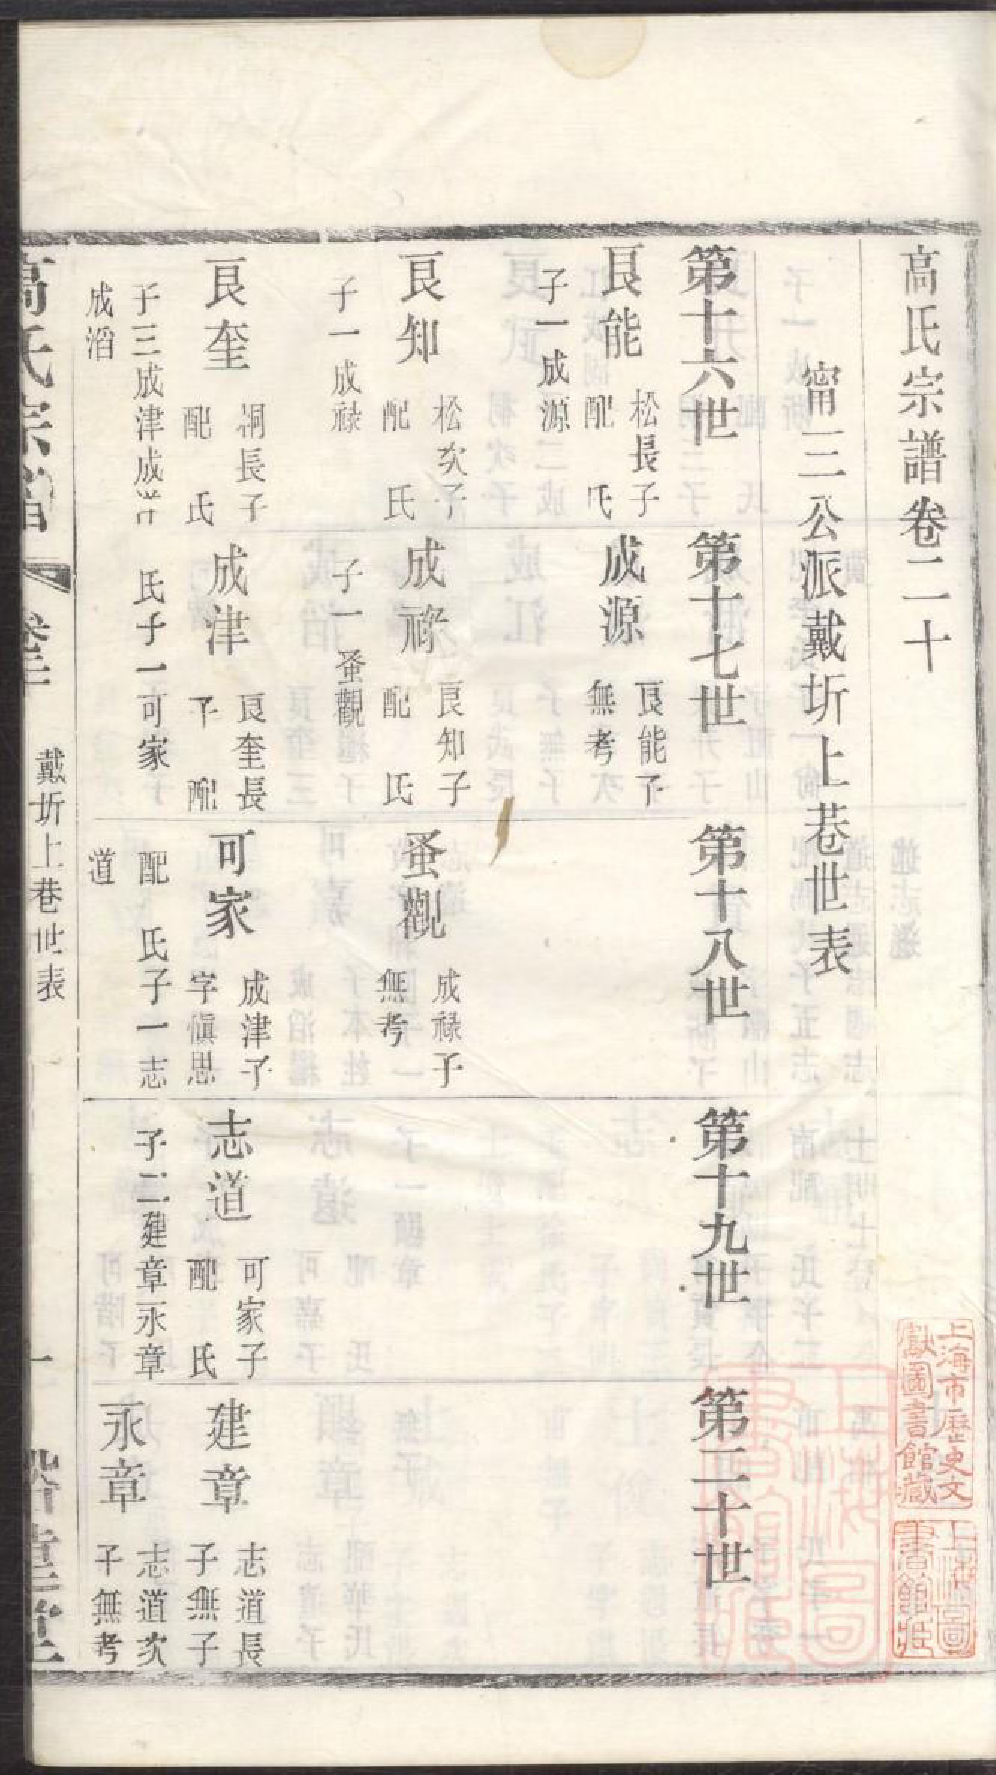 高氏宗譜卷二十
甯三公派戴圻上巷世表
第十六世
第十七世
第十八世
第十九世
第二十世
良能
松長子
配　氏
子一成源
成源
良能子
無考
良知
松次子
配　氏
子一成祿
成祿
良知子
配　氏
子一蚤觀
蚤觀
成祿子
無考
良奎
桐長子
配　氏
子三成津成
成滔
成津
良奎長
子　配
氏子一可家
可家
成津子
字愼思
配　氏子一志
道
志道
可家子
配　氏
子二建章永章
建章
志道長
子無子
永章
志道次
子無考
高氏宗譜
戴圻上巷世表
一
上海市歷史文
獻圖書館藏
上海圖
書館藏